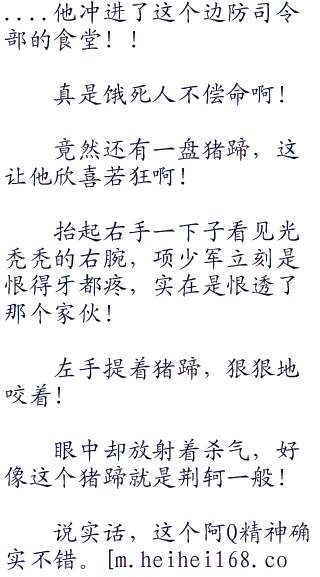 ....他冲进了这个边防司令
部的食堂！！
真是饿死人不偿命啊！
竟然还有一盘猪蹄，这
让他欣喜若狂啊！
抬起右手一下子看见光
秃秃的右腕，项少军立刻是
恨得牙都疼，实在是恨透了
那个家伙！
左手提着猪蹄，狠狠地
咬着！
眼中却放射着杀气，好
像这个猪蹄就是荆轲一般！
说实话，这个阿Q精神确
实不错。[m.heihei168.co